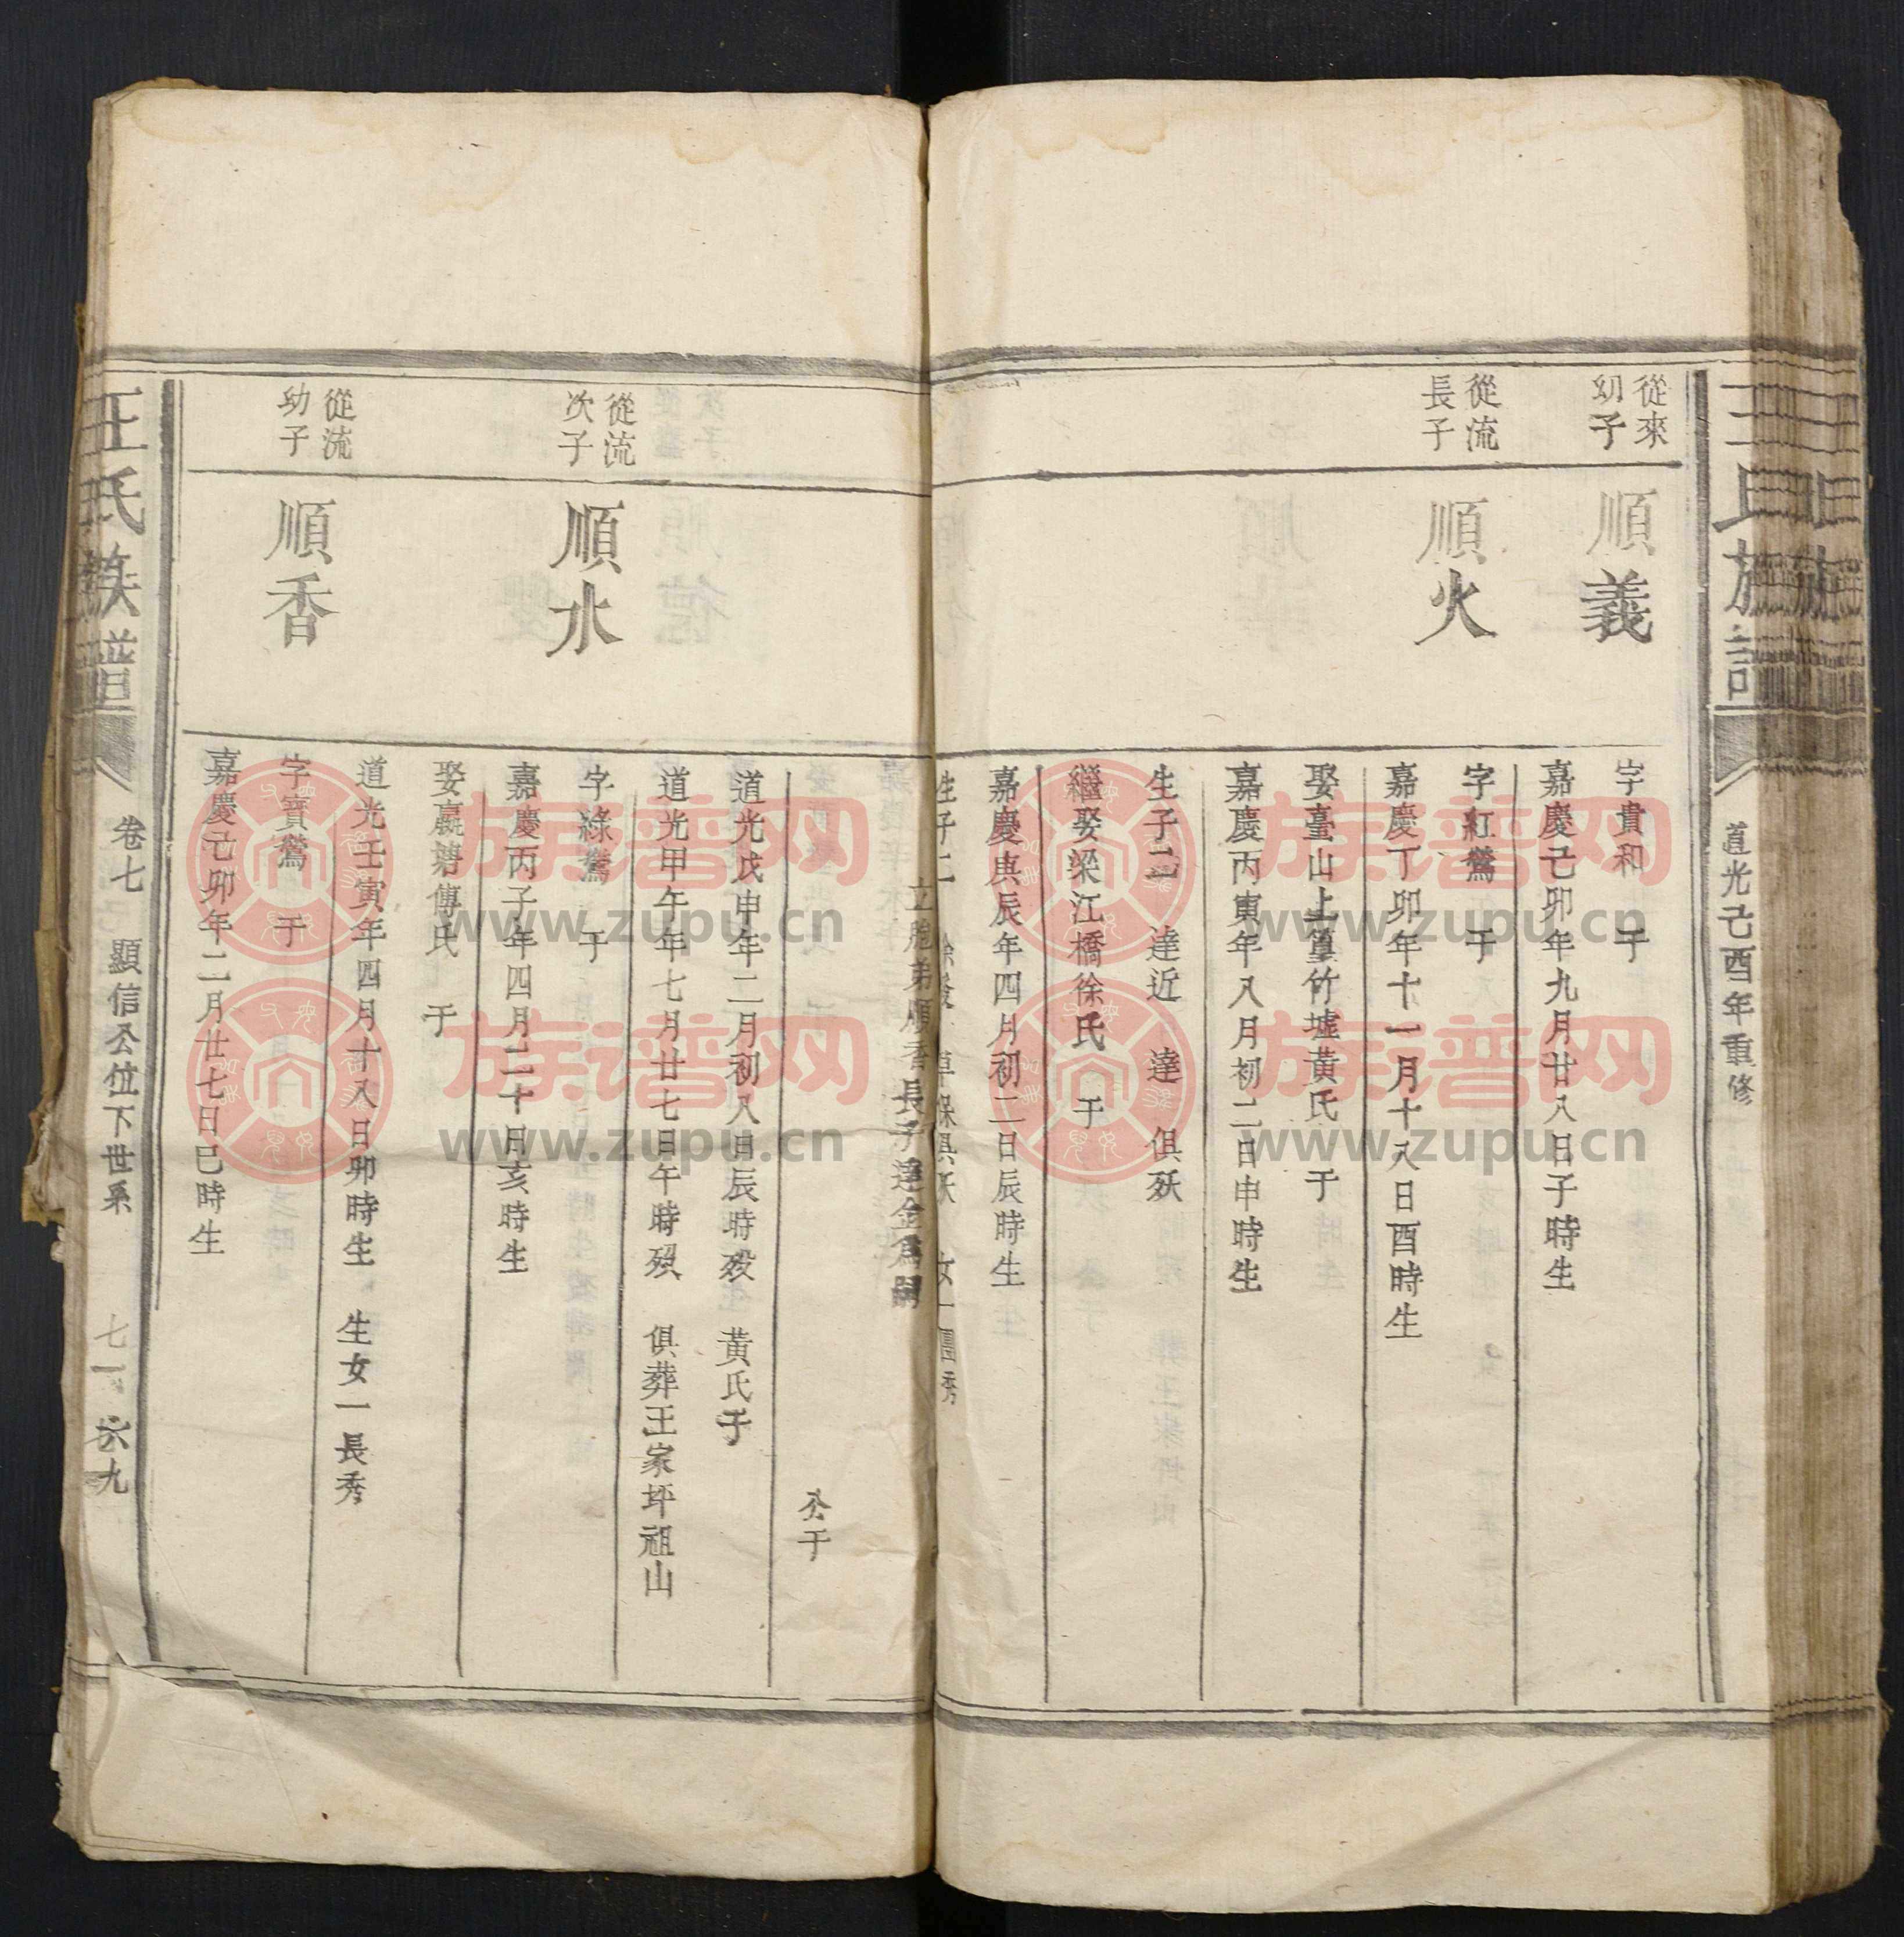 王氏族譜
道光己酉年重修
從來
幼子
順義
字貴和 于
嘉慶己卯年九月廿八日子時生
從流
長子
順火
字紅鶯 于
嘉慶丁卯年十一月十八日酉時生
娶臺山上篁竹墟黃氏 于
嘉慶丙寅年八月初二日申時生
生子二 達近 達 俱殀
繼娶梁江橋徐氏 于
嘉慶庚辰年四月初二日辰時生
生子二 俱殀 女一 團秀
立胞弟順香長子達金為嗣
公于
道光戊申年二月初八日辰時歿 黃氏于
道光甲午年七月廿七日午時歿 俱葬王家坪祖山
從流
次子
順水
字綠鶯 于
嘉慶丙子年四月二十日亥時生
娶嬴塘傅氏 于
道光壬寅年四月十八日卯時生 生女一長秀
從流
幼子
順香
字寶鶯 于
嘉慶己卯年二月廿七日巳時生
王氏族譜
卷七 顯信公位下世系
七一 六九
族谱网
www.zupu.cn
族谱网
www.zupu.cn
族谱网
www.zupu.cn
族谱网
www.zupu.cn